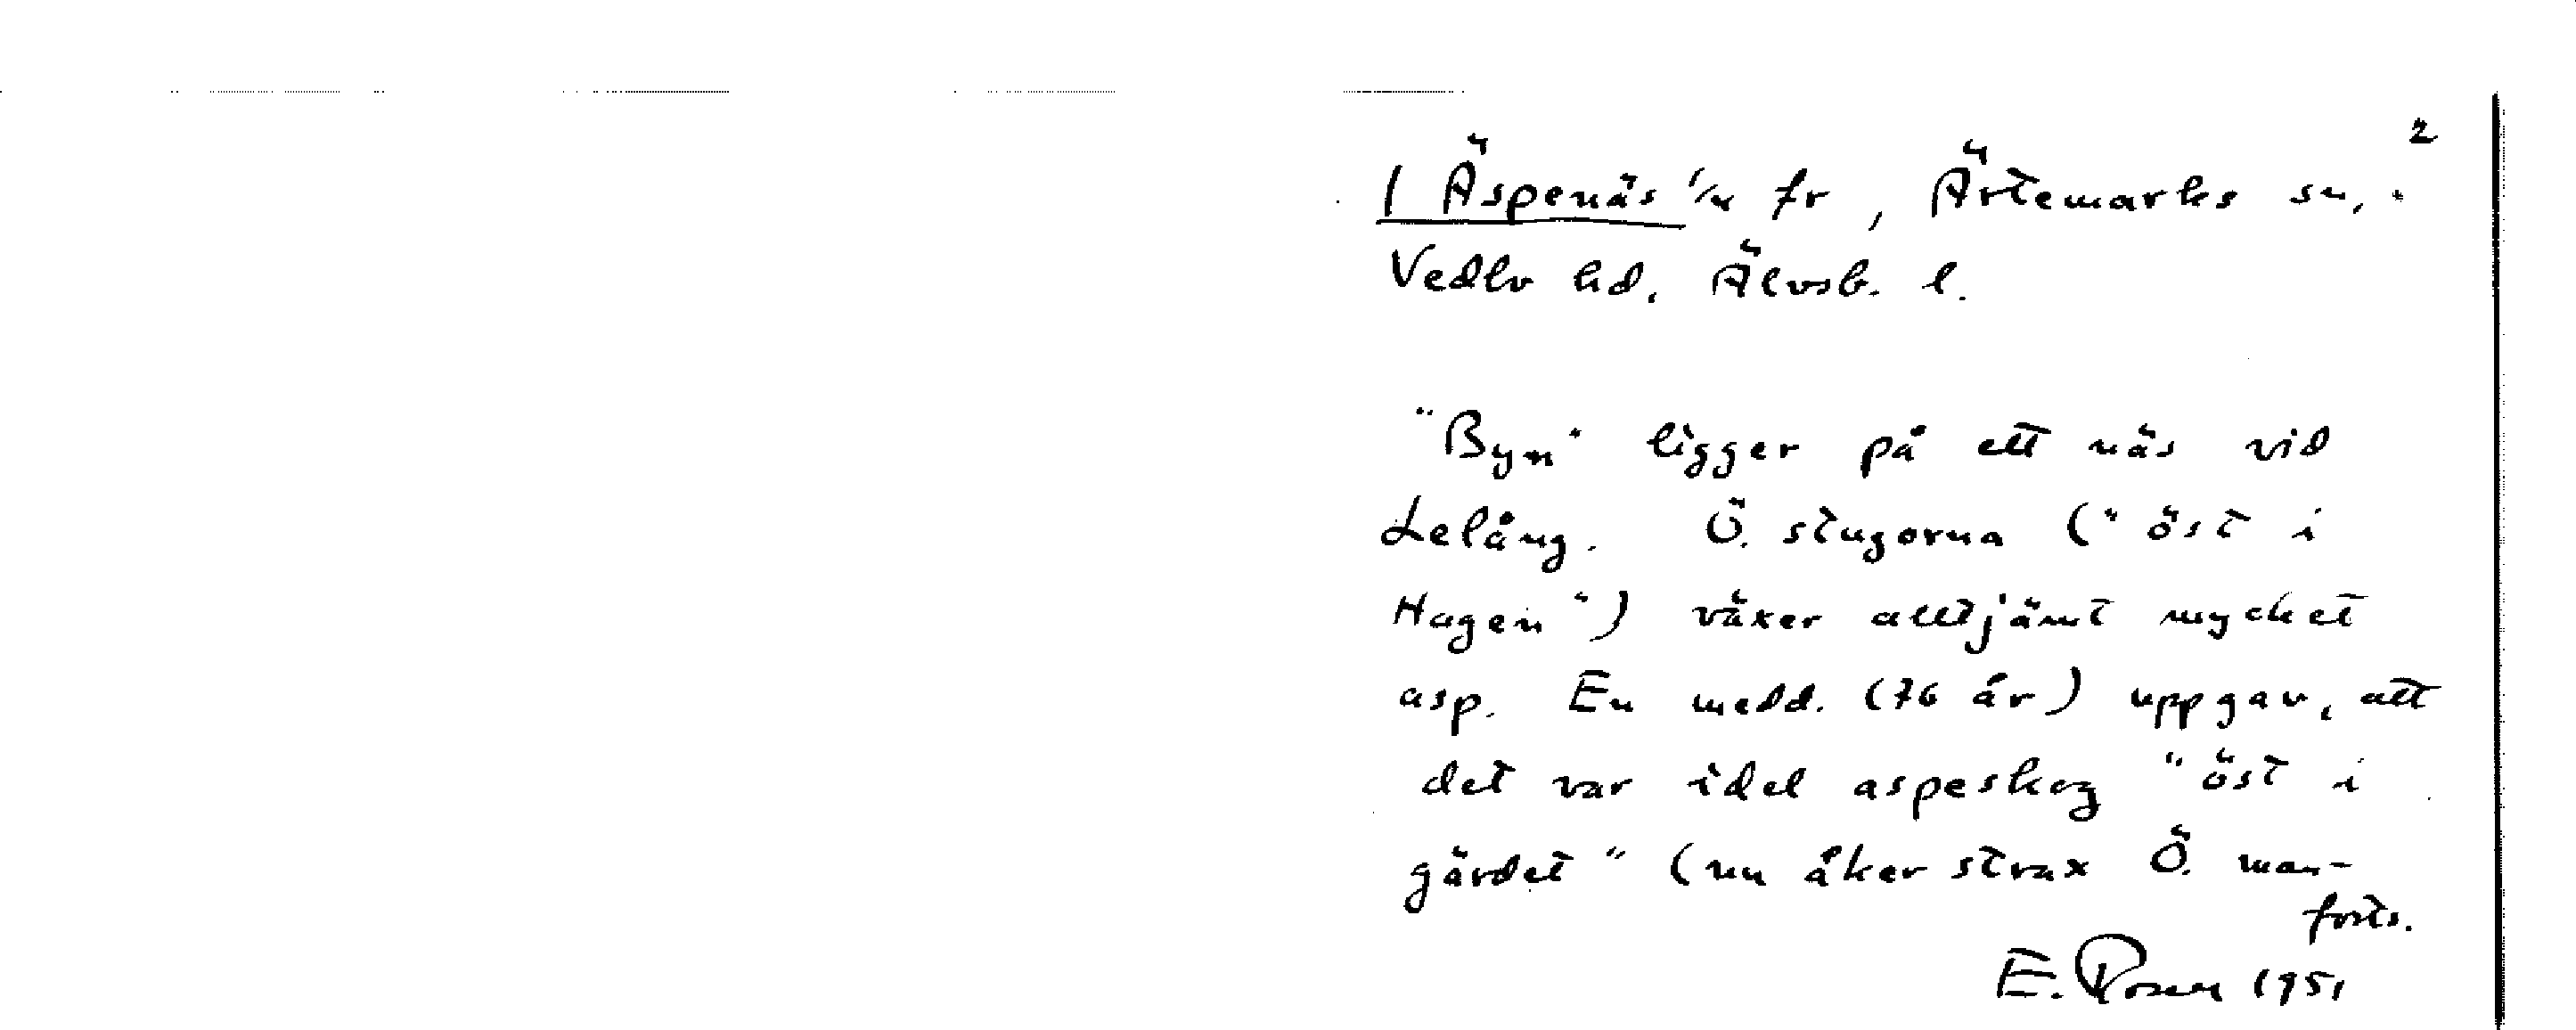 2
1 Äspenäs 1/4 fr, Ärtemarks sn,
Vedbo hd, Älvsb. l.
"Byn" ligger på ett näs vid
Lelång. Ö. stugorna ("öst i
Hagen") växer alltjämt mycket
asp. En medd. (76 år) uppgav, att
det var idel aspeskog "öst i
gärdet" (nu åker strax Ö. man-
forts.
E. Rosell 1951